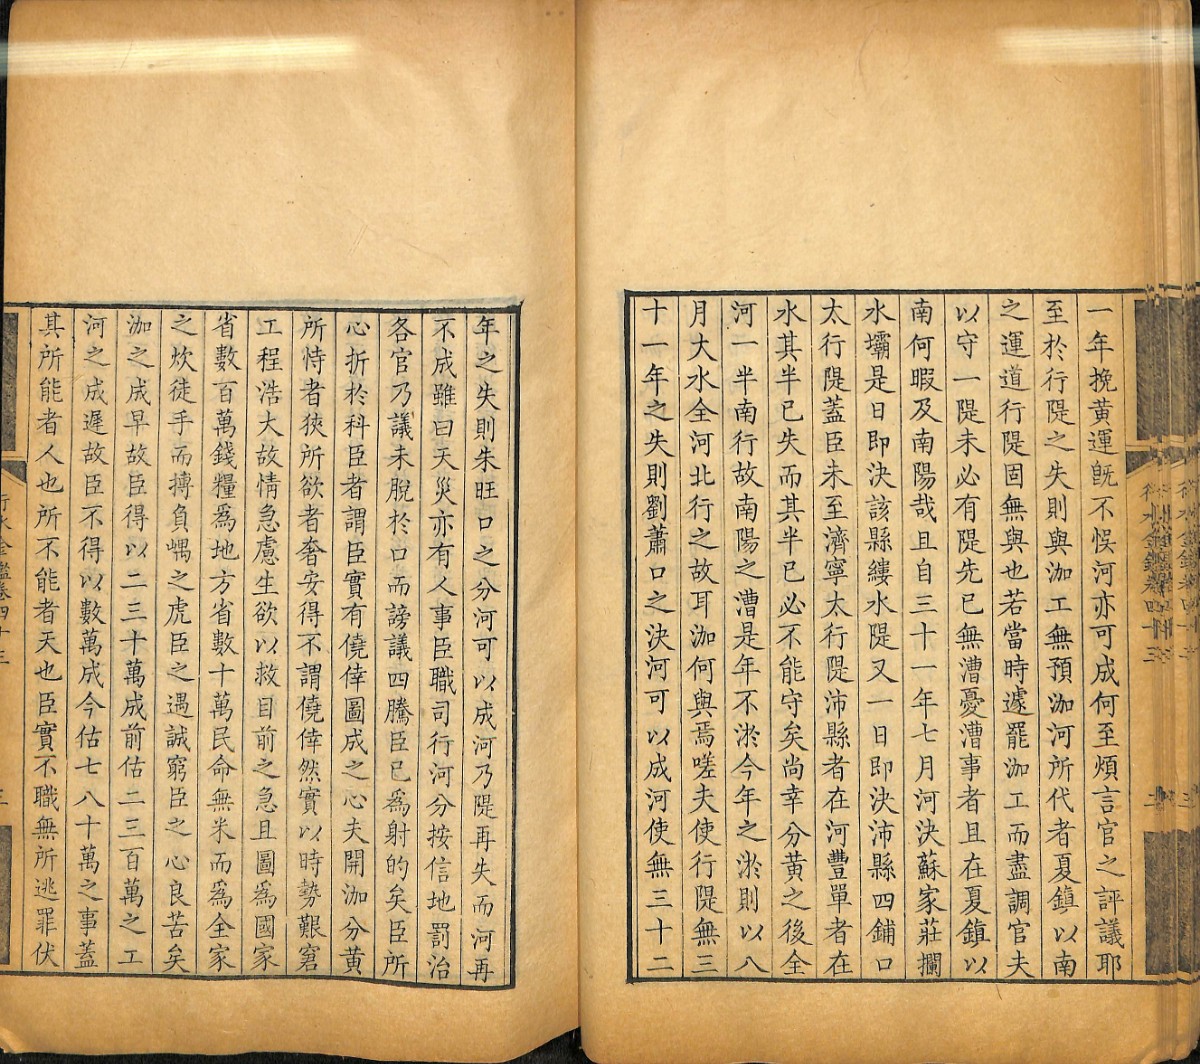 一年挽黄運旣不悞河亦可成何至煩言官之評議耶
至於行隄之失則與泇工無預泇河所代者夏鎮以南
之運道行隄固無與也若當時遽罷泇工而盡調官夫
以守一隄未必有隄先已無漕憂漕事者且在夏鎮以
南何暇及南陽哉且自三十一年七月河決蘇家莊攔
水壩是日即決該縣縷水隄又一日即決沛縣四鋪口
太行隄蓋臣未至濟寧太行隄沛縣者在河豐單者在
水其半已失而其半已必不能守矣尚幸分黃之後全
河一半南行故南陽之漕是年不淤今年之淤則以八
月大水全河北行之故耳泇何與焉嗟夫使行隄無三
十一年之失則劉蕭口之決河可以成河使無三十二
年之失則朱旺口之分河可以成河乃隄再失而河再
不成雖曰天災亦有人事臣職司行河分按信地罰治
各官乃議未脫於口而謗議四騰臣已爲射的矣臣所
心折於科臣者謂臣實有僥倖圖成之心夫開泇分黃
所恃者狹所欲者奢安得不謂僥倖然實以時勢艱窘
工程浩大故情急慮生欲以救目前之急且圖爲國家
省數百萬錢糧爲地方省數十萬民命無米而爲全家
之炊徒手而搏負嵎之虎臣之遇誠窮臣之心良苦矣
泇之成早故臣得以二三十萬成前估二三百萬之工
河之成遲故臣不得以數萬成今估七八十萬之事蓋
其所能者人也所不能者天也臣實不職無所逃罪伏
行水金鑑卷四十三
三